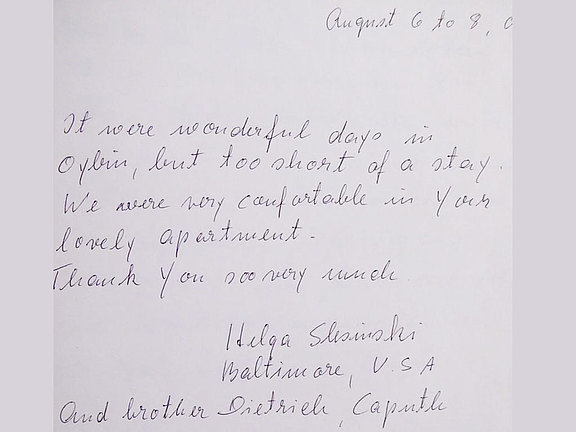 August 6 to 8,
It were wonderful days in
Oybin, but too short of a stay.
We were very comfortable in Your
lovely apartment.
Thank You soo very much
Helga
Baltimore, U.S A
And brother Dietrich, Caputh